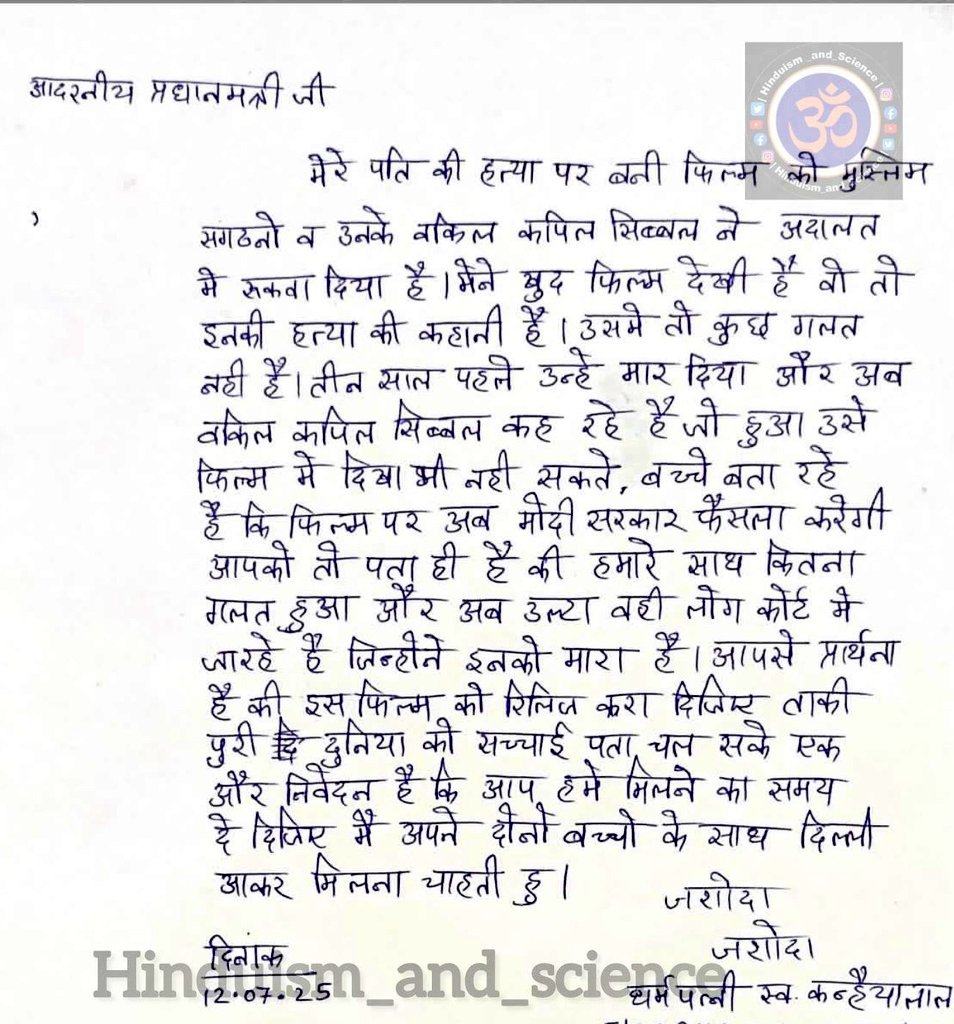 | Hinduism_and_Science |
आदरनीय प्रधानमत्री जी
मेरे पति की हत्या पर बनी फिल्म को मुस्लिम
सगठनो व उनके वकिल कपिल सिब्बल ने अदालत
मे रुकवा दिया है। मैने खुद फिल्म देखी है वो तो
इनकी हत्या की कहानी है। उसमे तो कुछ गलत
नही है। तीन साल पहले उन्हे मार दिया और अब
वकिल कपिल सिब्बल कह रहे है जो हुआ उसे
फिल्म मे दिखा भी नही सकते, बच्चे बता रहे
है कि फिल्म पर अब मोदी सरकार फैसला करेगी
आपको तो पता ही है की हमारे साथ कितना
गलत हुआ और अब उल्टा वही लोग कोर्ट मे
जारहे है जिन्होने इनको मारा है। आपसे प्रार्थना
है की इस फिल्म को रिलिज करा दिजिए ताकी
पुरी दुनिया को सच्चाई पता चल सके एक
और निर्वेदन है कि आप हमे मिलने का समय
दे दिजिए मै अपने दोनो बच्चो के साथ दिल्ली
आकर मिलना चाहती हु।
जशोदा
दिनांक
जशोदा
12.07.25
धर्मपत्नी स्व. कन्हैयालाल
Hinduism_and_science